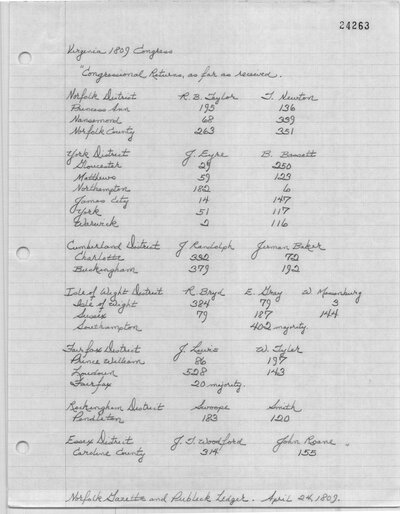 24263
Virginia 1809 Congress
"Congressional Returns, as far as received.
Norfolk District R. B. Taylor T. Newton
Princess Ann 195 136
Nansemond 68 359
Norfolk County 263 351
York District J. Eyre B. Bassett
Gloucester 29 250
Matthews 59 123
Northampton 182 6
James City 14 147
York 51 117
Warwick 2 116
Cumberland District J. Randolph Jerman Baker
Charlotte 332 72
Buckingham 379 192
Isle of Wight District R. Byrd E. Gray
Isle of Wight 384 79 3
Sussex 79 187 144
Southampton 402 majority.
Fairfax District J. Lewis W. Tyler
Prince William 86 197
Loudoun 528 143
Fairfax 20 majority.
Rockingham District Swoope Smith
Pendleton 183 120
Essex District J. T. Woodford John Roane "
Caroline County 314 155
Norfolk Gazette and Publick Ledger. April 24, 1809.